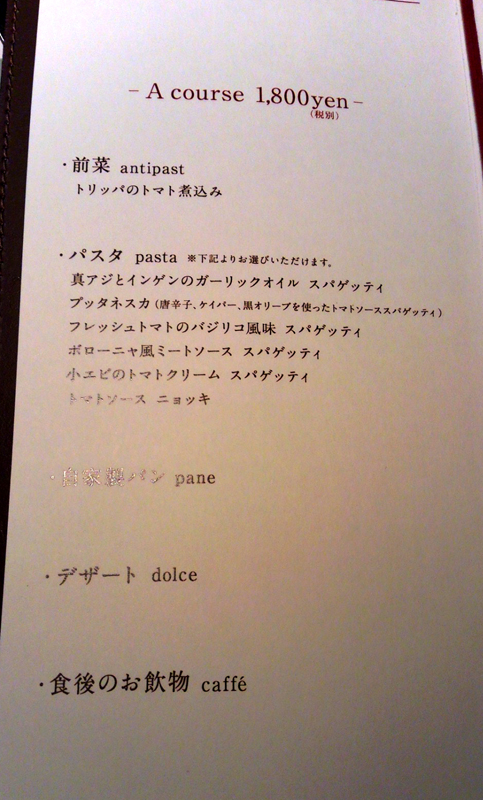 - A course 1,800yen -
(税別)
・前菜 antipast
トリッパのトマト煮込み
・パスタ pasta ※下記よりお選びいただけます。
真アジとインゲンのガーリックオイル スパゲッティ
プッタネスカ(唐辛子、ケイパー、黒オリーブを使ったトマトソーススパゲッティ)
フレッシュトマトのバジリコ風味 スパゲッティ
ボローニャ風ミートソース スパゲッティ
小エビのトマトクリーム スパゲッティ
トマトソース ニョッキ
・自家製パン pane
・デザート dolce
・食後のお飲物 caffé